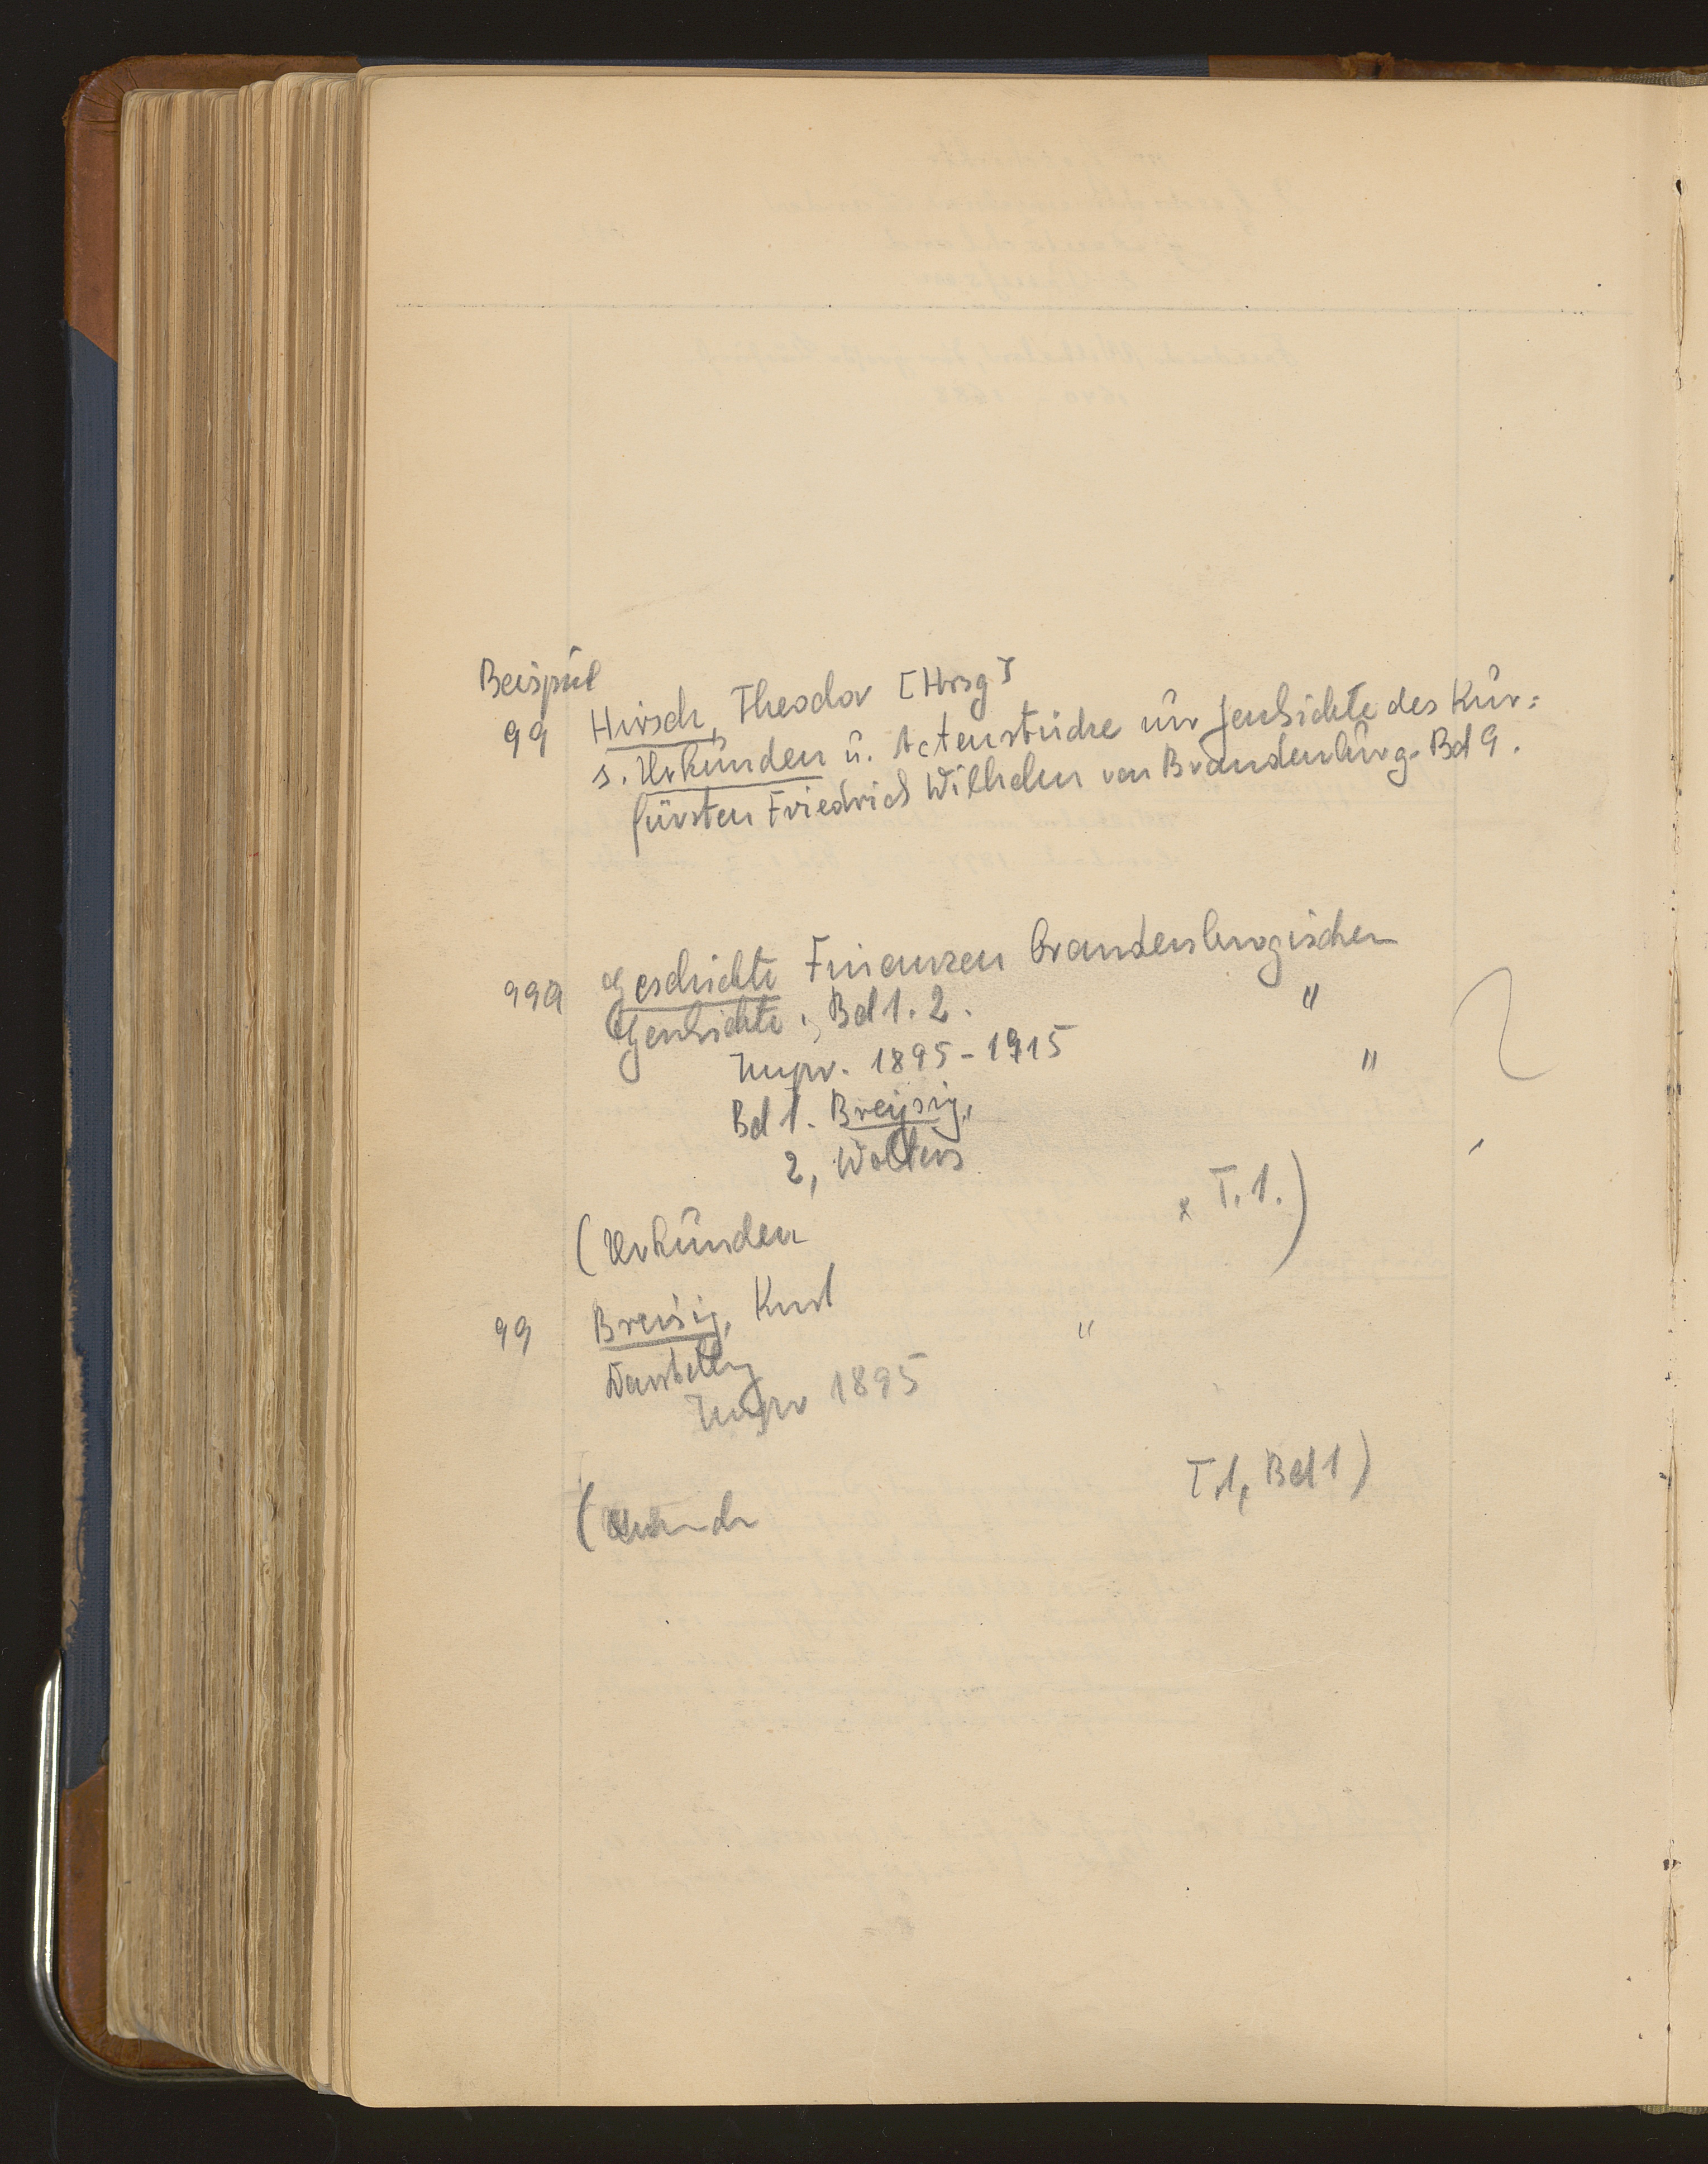 Beispiel
99 Hirsch, Theodor [Hrsg]
s. Urkunden u. Actenstücke zur Geschichte des Kur=
fürsten Friedrich Wilhelm von Brandenburg. Bd 9.
99a Geschichte Finanzen brandenburgischen
Geschichte, Bd 1. 2. "
Impr. 1895-1915 "
Bd 1. Breysig,
2, Wolters
(Urkunden T. 1.)
99 Breisig, Kurt "
Darstellg
Impr 1895
( T.1, Bd 1)